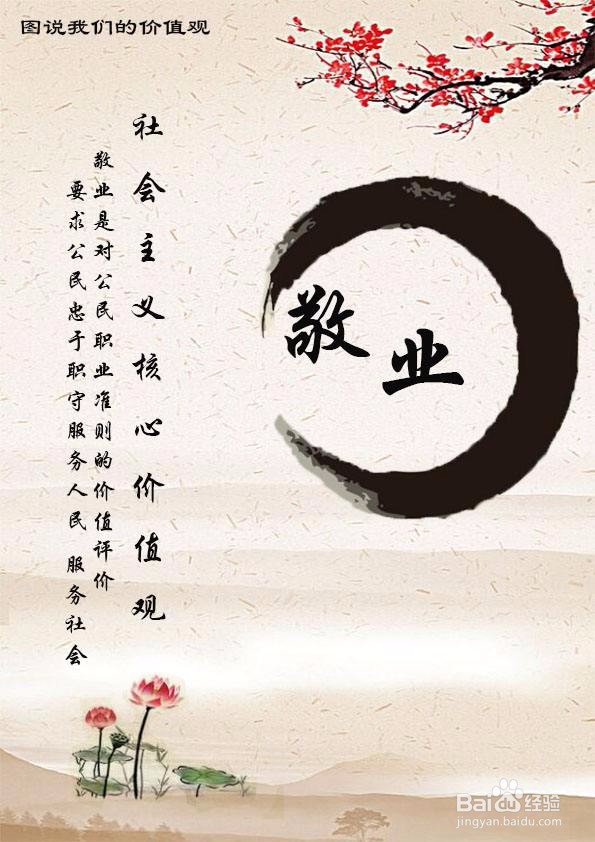 图说我们的价值观
社会主义核心价值观
敬业是对公民职业准则的价值评价
要求公民忠于职守服务人民 服务社会
敬业
Baidu经验
jingyan.baidu.com